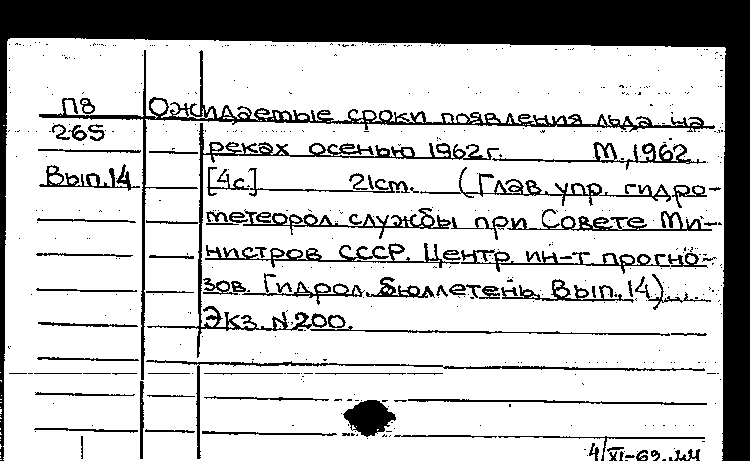 П8 Ожидаемые сроки появления льда на
265 реках осенью 1962г. М., 1962.
Вып.14 [4с.] 21см. (Глав. упр. гидро-
метеорол. службы при Совете Ми-
нистров СССР. Центр. ин-т прогно-
зов. Гидрол. бюллетень. Вып. 14).
Экз. N 200.
4/XI-62.